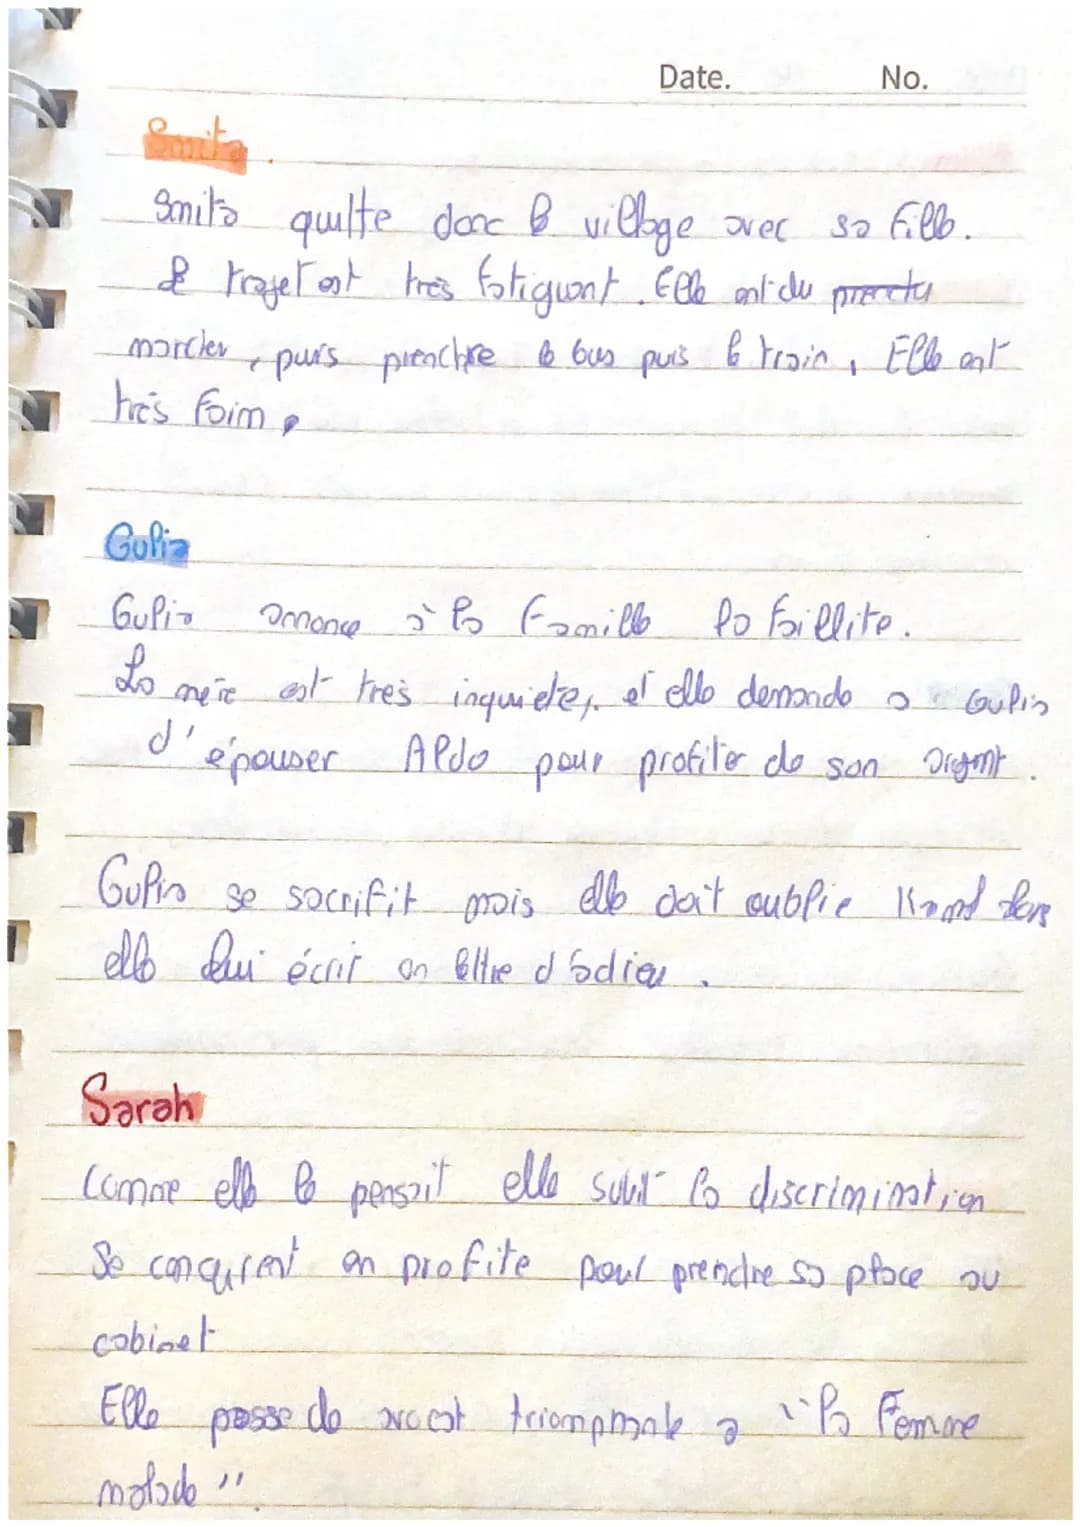 Date. No.
Smita.
Smita quitte donc le village avec sa fille.
Le trajet est très fatiguant. Elle ont du
marcher, puis prendre le bus puis le train, Elle ont
très faim.
Gulia
Gulia annonce à la famille la faillite.
La mère est très inquiète, et elle demande a Gulia
d'épouser Aldo pour profiter de son argent.
Gulia se sacrifit mais elle doit oublie Kamal alors
elle lui écrit un lettre d'adieu.
Sarah
Comme elle le pensait elle subit la discrimination
Se concurent en profite pour prendre sa place au
cabinet
Elle passe de avocat triomphante a "la femme
malade"